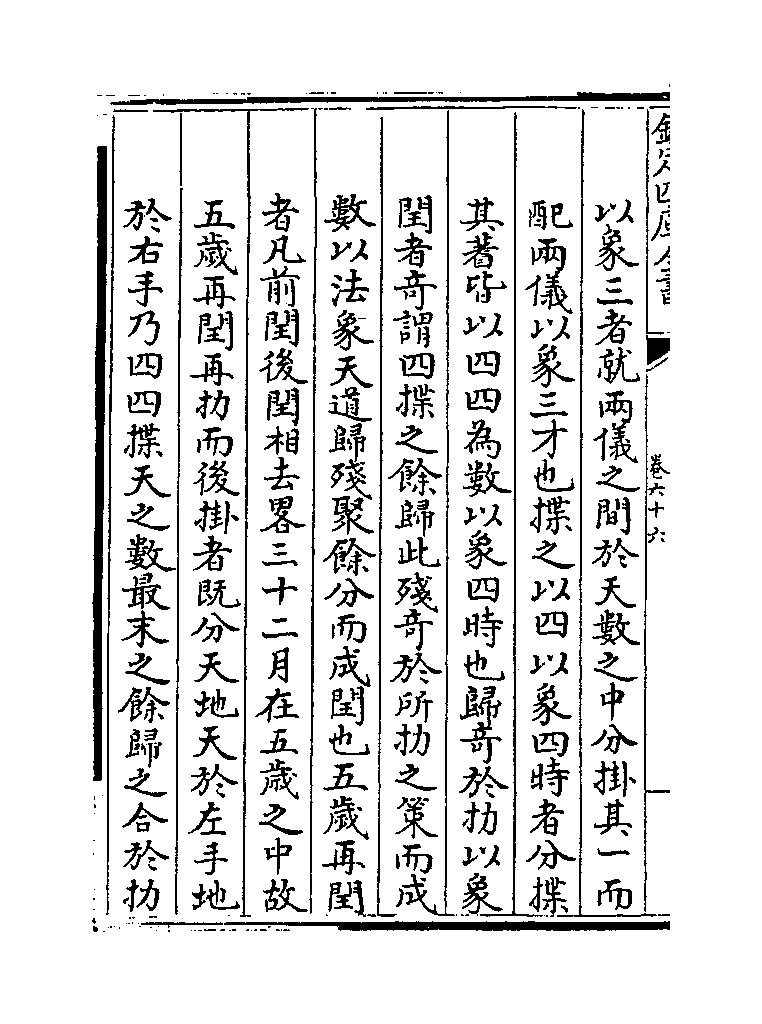 欽定四庫全書
卷六十六
以象三者就兩儀之間於天數之中分掛其一而
配兩儀以象三才也揲之以四以象四時者分揲
其蓍皆以四四為數以象四時也歸奇於扐以象
閏者奇謂四揲之餘歸此殘奇於所扐之策而成
數以法象天道歸殘聚餘分而成閏也五歲再閏
者凡前閏後閏相去畧三十二月在五歲之中故
五歲再閏再扐而後掛者既分天地天於左手地
於右手乃四四揲天之數最末之餘歸之合於扐